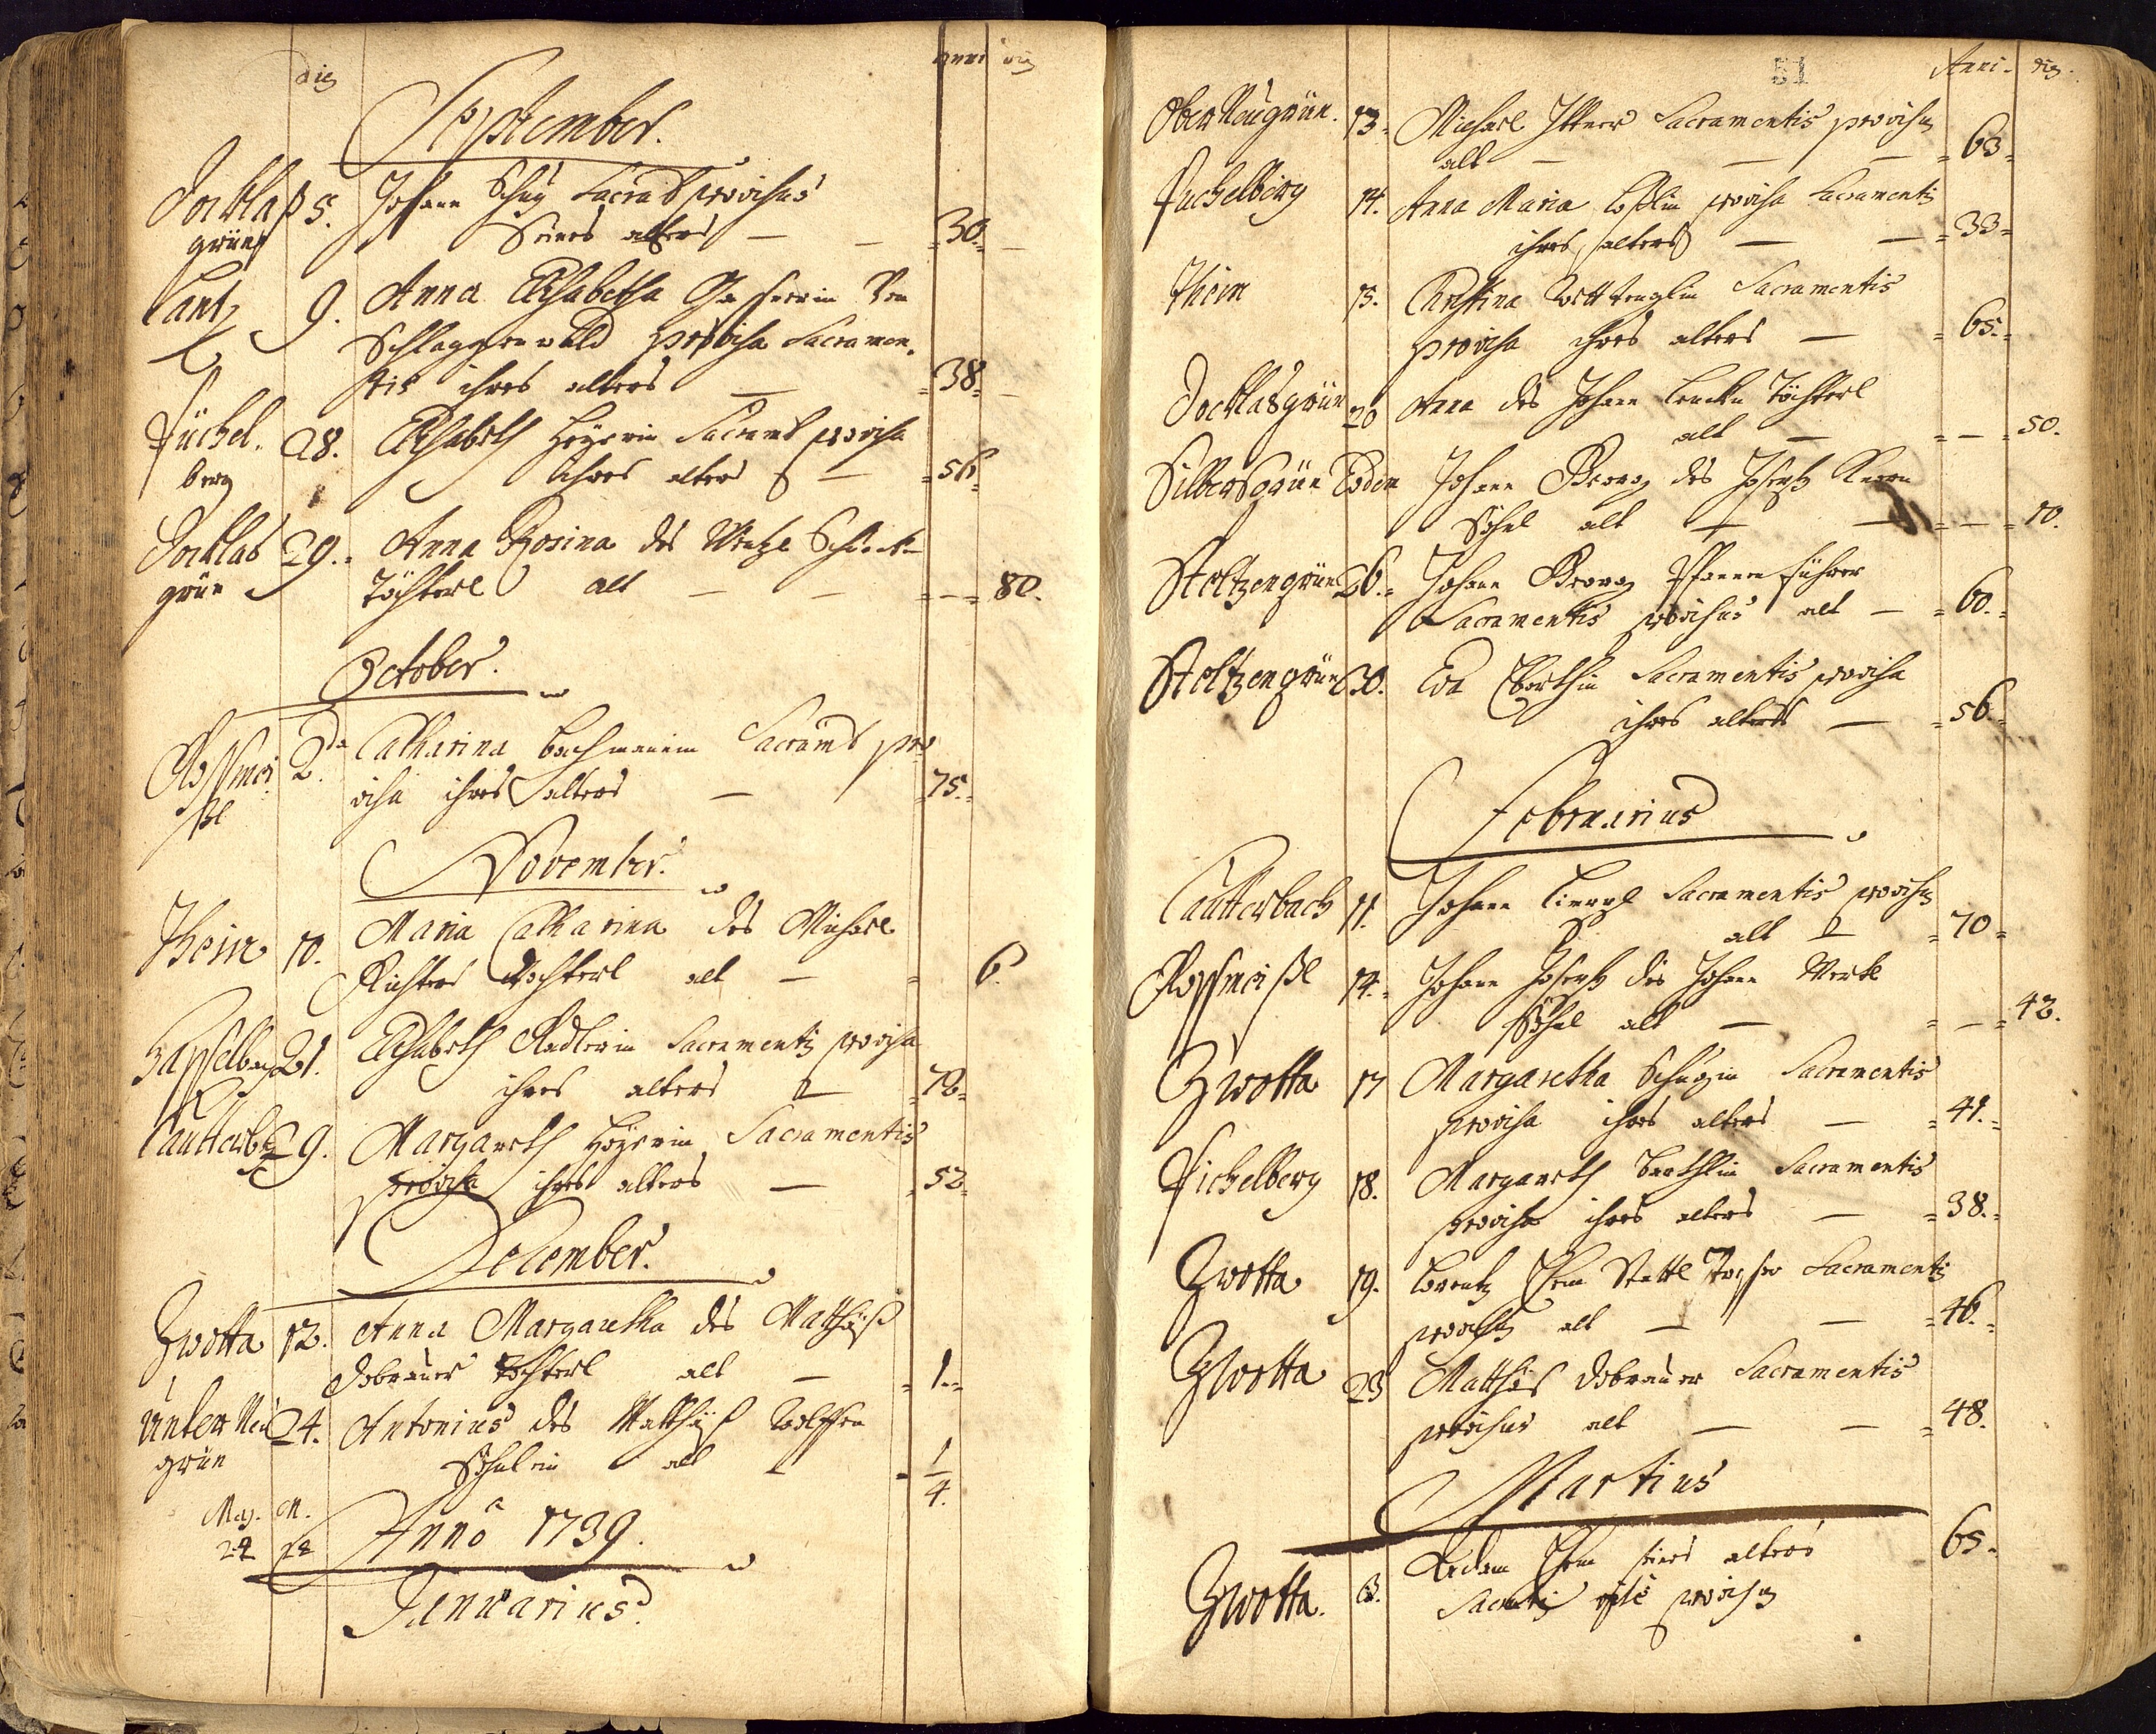 dies Anni dies
September.
Docklaß 5. Johann Schug Sacrat provisus
grün Seines alters — — 30.
Lantz 9. Anna Elisabetha Gasserin Von
Schlaggenwald provisa Sacramen
tis ihres alters — 38.
Füchel. 28. Elisabeth Heyerin Sacramt provisa
berg ihres alters — 56
Docklas 29. Anna Rosina des
grün Töchterl alt — — 80.
October.
Rossmei 2da Catharina Bachmanin Sacramt pro
ßl visa ihres alters — 75.
November.
Thein 10. Maria Catharina des Michael
Richters Tochterl alt — 6.
21. Elisabeth Radlerin Sacramentis provisa
ihres alters —
Lautterb 29. Margareth Heyerin Sacramentis
provisa ihres alters — 52
December.
Zwotta 12. Anna Margaretha des Matthäiß
Dobrauer Tochterl alt — 1.
Unter Neu 24. Antonius des Matthäiß Wolffen
grün Söhnlein alt 1/4.
Anno 1739.
Januarius.
51 Anni. dies.
Ober Neugrün. 13. Michael Ittner Sacramentis provisus
alt — — — 63
Fuchelberg 14. Anna Maria provisa Sacramentis
ihres alters — — 33
Thein 15. Christina Sacramentis
provisa ihres alters — 65.
Docklasgrün 20 Anna des Johann Töchterl
alt — — 50.
Silbersgrün Eodem Johann Georg des Joseph
Söhnl alt — — — 10.
Stoltzengrün 26. Johann Georg
Sacramentis provisus alt — 60.
Stoltzengrün 30. Eva Eberthin Sacramentis provisa
ihres alters — 56.
Februarius
Lautterbach 11. Johann Sacramentis provisus
alt 70
Rossmeißl 14. Johann Joseph des Johann Merkl
Söhnl alt — — 42.
Zwotta 17 Margaretha Schugin Sacramentis
provisa ihres alters — 41.
Fichelberg 18. Margareth Sacramentis
provisa ihres alters — 38.
Zwotta 19. Lorentz Sacramentis
provisus alt — — 46.
Zwotta 23 Matthäs Dobrauer Sacramentis
provisus alt — — 48.
Martius
Zwotta. 3. Adam seines alters 65.
provisus